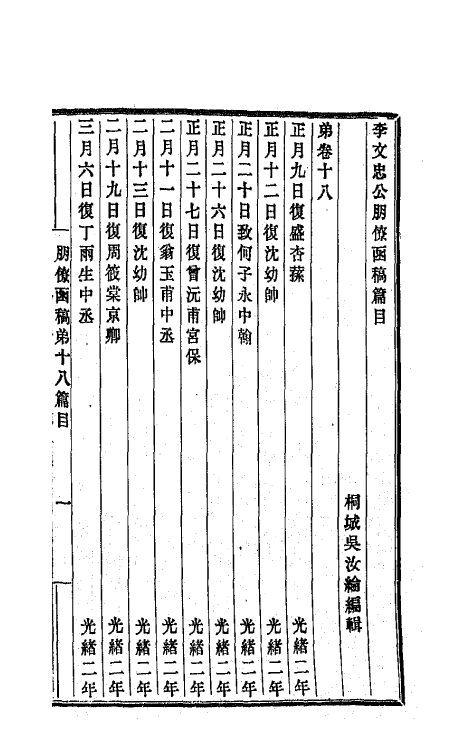 李文忠公朋僚函稿篇目
桐城吳汝綸編輯
弟卷十八
正月九日復盛杏蓀 光緒二年
正月十二日復沈幼帥 光緒二年
正月二十日致何子永中翰 光緒二年
正月二十六日復沈幼帥 光緒二年
正月二十七日復曾沅甫宮保 光緒二年
二月十一日復翁玉甫中丞 光緒二年
二月十三日復沈幼帥 光緒二年
二月十九日復周筱棠京卿 光緒二年
三月六日復丁雨生中丞 光緒二年
朋僚函稿弟十八篇目 一